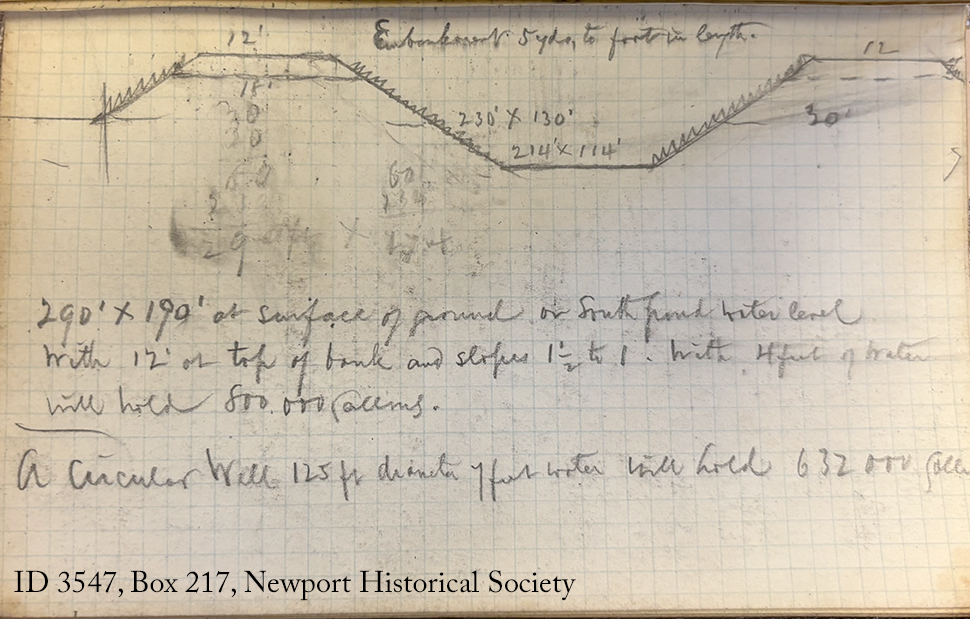 12' Embankment 5 yds, to foot in length.
12
18'
30
30
30'
230' X 130'
214' X 114'
60
234
29 X
290' X 190' at surface of ground or South pond water level
With 12' at top of bank and slopes 1½ to 1. With 4 feet of water
will hold 800.000 Gallons.
A Circular Well 125 ft diameter 7 feet water will hold 632 000
ID 3547, Box 217, Newport Historical Society